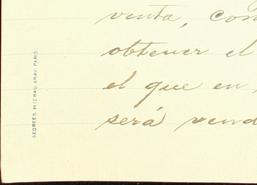 venta, con
obtener el
el que en
será vend
GEORGES MICHAU GRAV. PARIS.